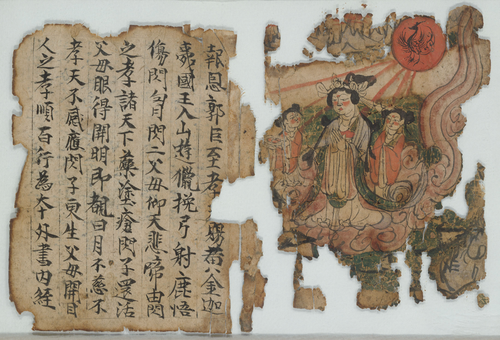 報恩郭巨至孝 賜 金迦
夷國王入山遊獵挽弓射鹿悟
傷閃 閃二父母仰天悲啼由閃
之孝諸天下藥塗瘡閃子還活
父母眼得開明即覩日月不慈不
孝天不感應閃子更生父母開目
人之孝順百行為本外書内經